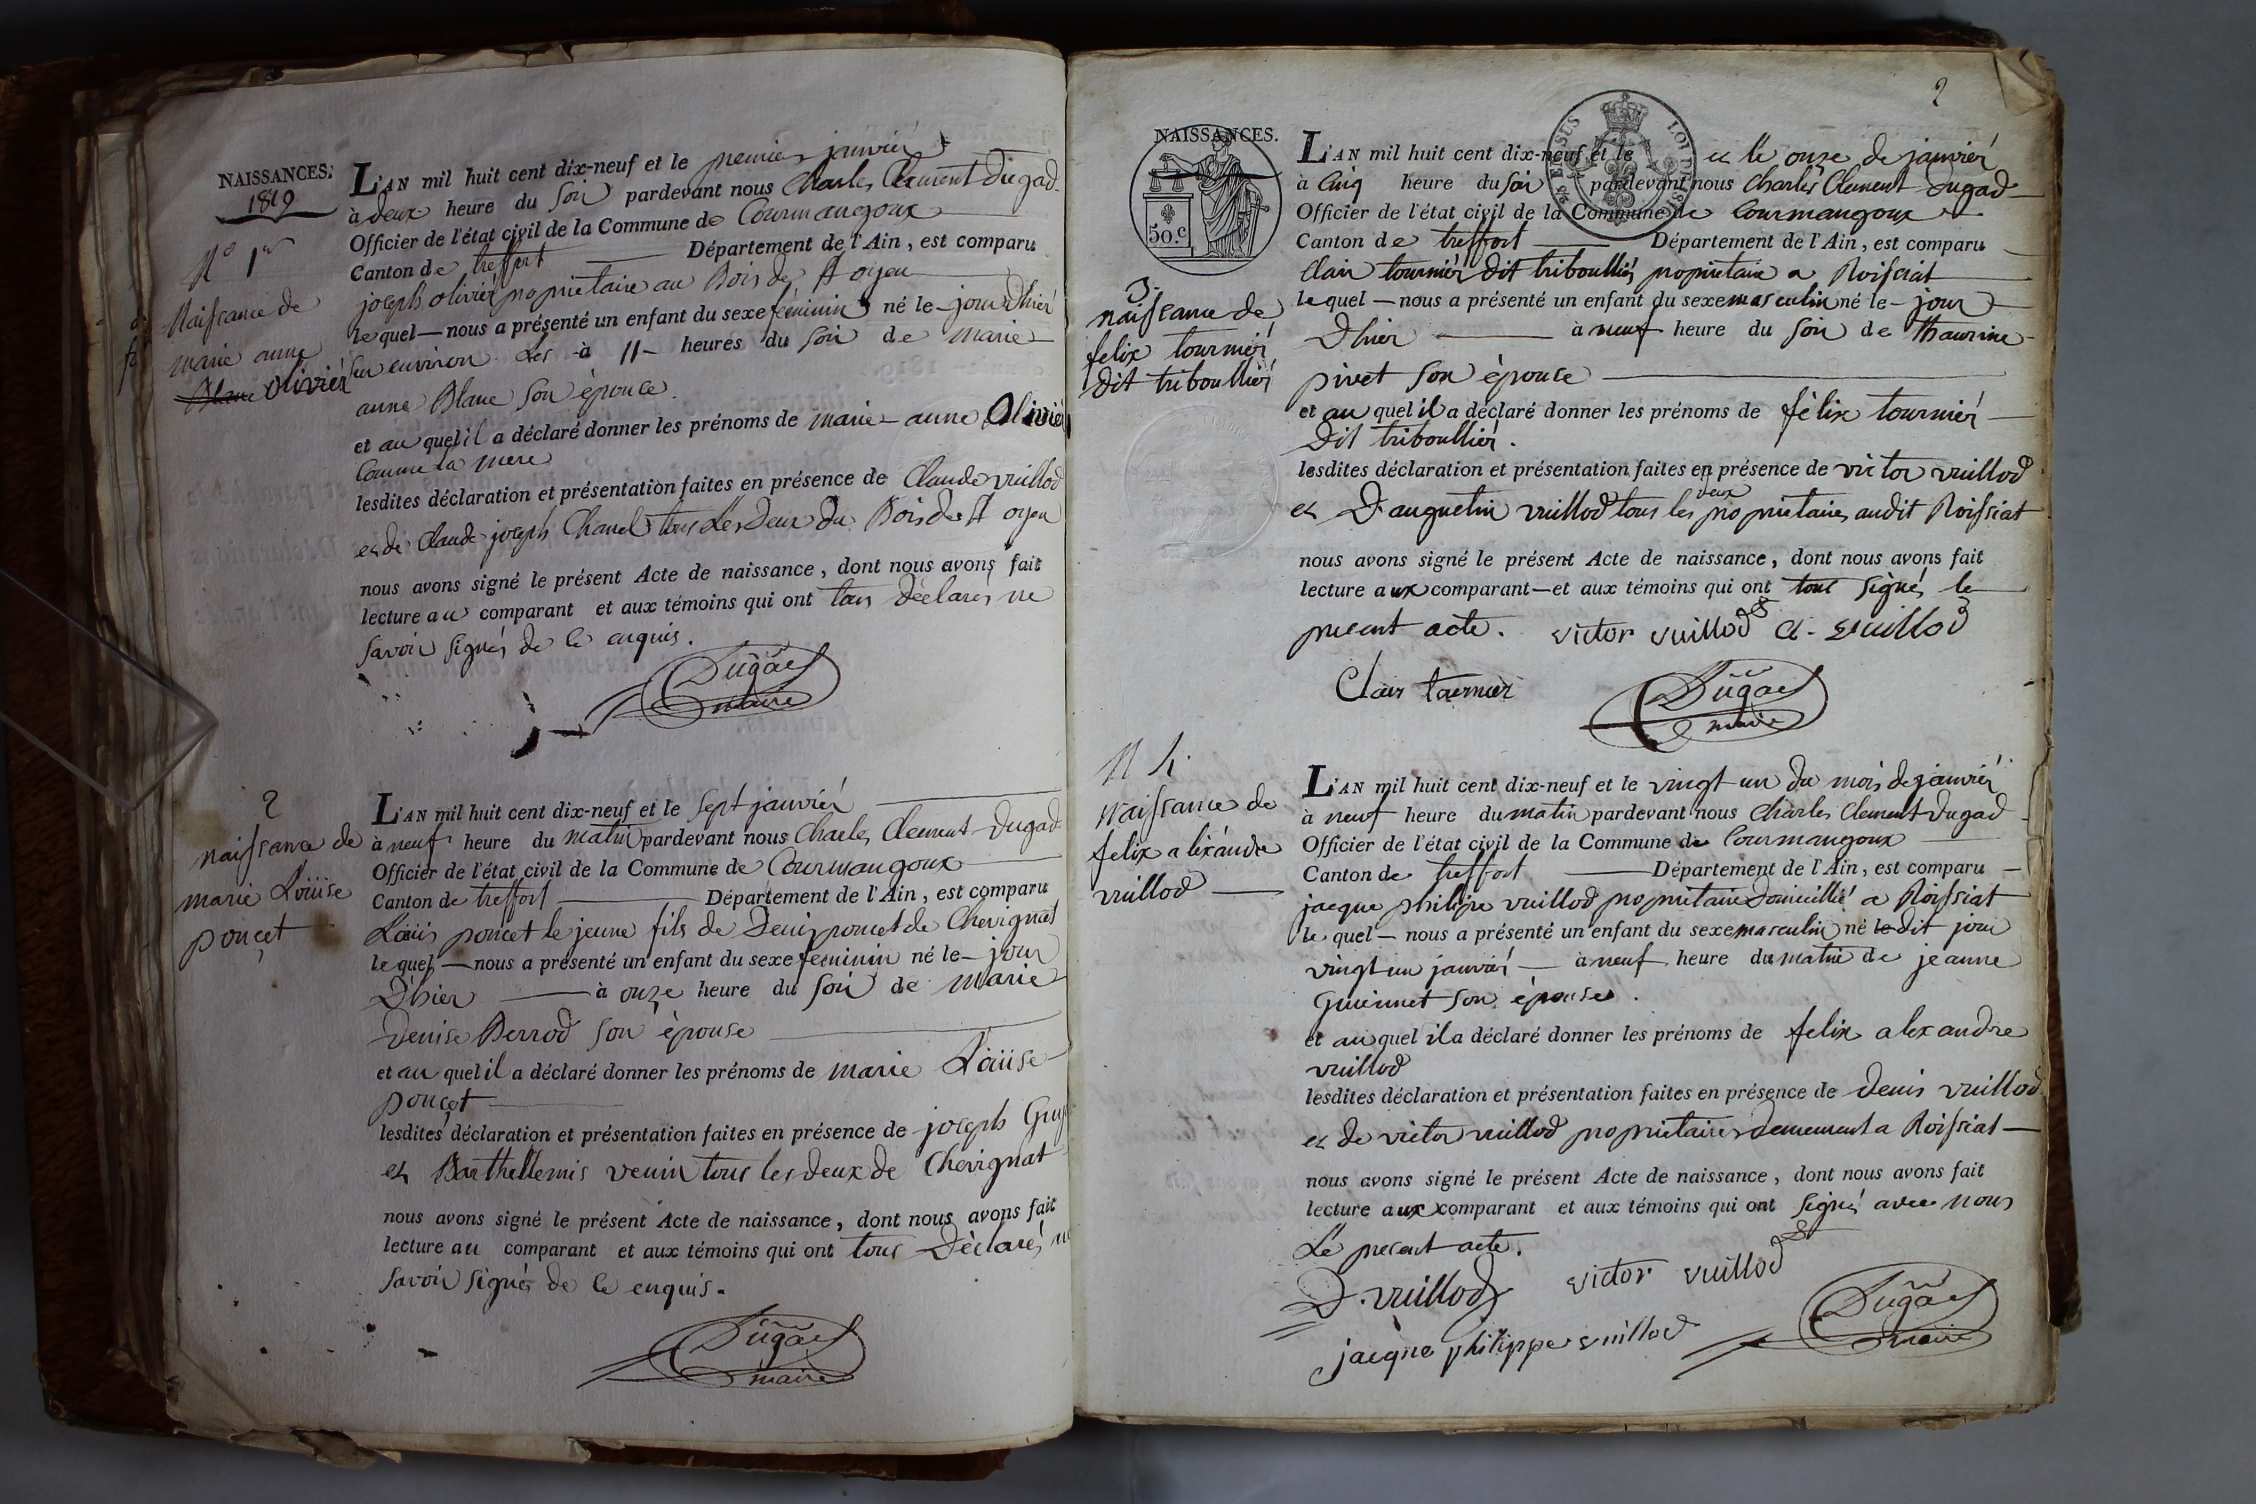 NAISSANCES.
1819
N° 1er
Naissance de
marie anne
Blanc olivier
L'AN mil huit cent dix-neuf et le premier janvier
à deux heure du soir pardevant nous Charles Clement Dugad
Officier de l'état civil de la Commune de Courmangoux
Canton de treffort Département de l'Ain, est comparu
joseph olivier propriétaire au Bois de St oyen
lequel — nous a présenté un enfant du sexe féminin né le jour Dhier
environ Les à 11 heures du soir de marie
anne Blanc son épouse.
et au quel il a déclaré donner les prénoms de marie-anne Olivier
Comme la mere
lesdites déclaration et présentation faites en présence de Claude vuillod
et de Claude joseph Chanel tous Les Deux Du Bois de St oyen
nous avons signé le présent Acte de naissance, dont nous avons fait
lecture au comparant et aux témoins qui ont tous Déclarés ne
savoir signés de ce enquis.
Dugad
maire
2
naissance de
marie Loüise
ponçet
L'AN mil huit cent dix-neuf et le sept janvier
à neuf heure du matin pardevant nous Charles Clement Dugad
Officier de l'état civil de la Commune de Courmangoux
Canton de treffort Département de l'Ain, est comparu
Loüis poncet le jeune fils de Denis poncet de Chevignat
le quel — nous a présenté un enfant du sexe feminin né le — jour
D'hier à onze heure du soir de marie
Denise Perrod son épouse
et au quel il a déclaré donner les prénoms de marie Loüise
ponçet
lesdites déclaration et présentation faites en présence de joseph
et Barthellemis venin tous les deux de Chevignat
nous avons signé le présent Acte de naissance, dont nous avons fait
lecture au comparant et aux témoins qui ont tous Déclarés
savoir signés de ce enquis.
Dugad
maire
2
NAISSANCES.
50.c
3.
naissance de
felix tournier
dit triboullier
L'AN mil huit cent dix-neuf et le et le onze de janvier
à Cinq heure du soir pardevant nous Charles Clement Dugad
Officier de l'état civil de la Commune de Courmangoux
Canton de treffort Département de l'Ain, est comparu
Clair tournier dit triboullier propriétaire a Roissiat
lequel — nous a présenté un enfant du sexe masculin né le — jour
Dhier à neuf heure du soir de Thaurine
pivet son épouse
et au quel il a déclaré donner les prénoms de félix tournier
Dit triboullier.
lesdites déclaration et présentation faites en présence de victor vuillod
et D'auguetin vuillod tous les deux propriétaires audit Roissiat
nous avons signé le présent Acte de naissance, dont nous avons fait
lecture aux comparant — et aux témoins qui ont tous signés le
present acte. victor vuillod a. vuillod
Clair tournier
Dugad
maire
N 4.
Naissance de
felix alixandre
vuillod
L'AN mil huit cent dix-neuf et le vingt un du mois de janvier
à neuf heure du matin pardevant nous Charles Clement Dugad
Officier de l'état civil de la Commune de Courmangoux
Canton de treffort Département de l'Ain, est comparu
jacque philipe vuillod propriétaire Domicillié a Roissiat
le quel — nous a présenté un enfant du sexe masculin né le dit jour
vingt un janvier à neuf heure du matin de jeanne
Guiennet son épouse.
et au quel il a déclaré donner les prénoms de felix alexandre
vuillod
lesdites déclaration et présentation faites en présence de Denis vuillod
et de victor vuillod propriétaires demeurent a Roissiat
nous avons signé le présent Acte de naissance, dont nous avons fait
lecture aux comparant et aux témoins qui ont signés avec nous
Le present acte.
D. vuillod victor vuillod
jacque philippe vuillod
Dugad
maire